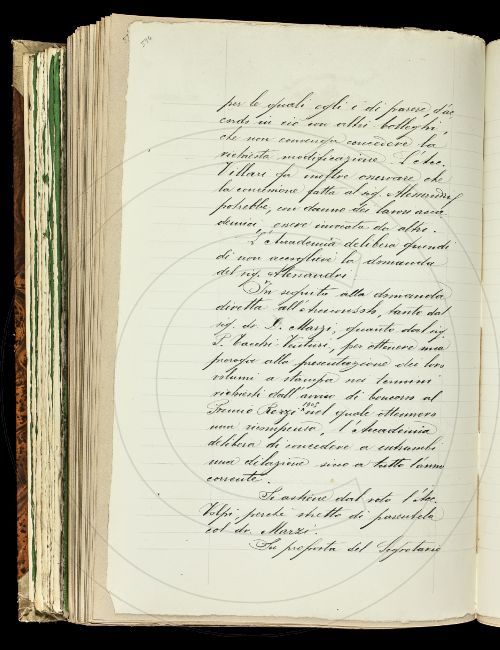 596
per le quali egli è di parere, d'ac
cordo in ciò con altri colleghi,
che non convenga concedere la
richiesta modificazione. L'Acc.
Villari fa inoltre osservare che
la concessione fatta al sig. Alessandri
potrebbe, con danno dei lavori acca
demici, essere invocata da altri.
L'Accademia delibera quindi
di non accogliere la domanda
del sig. Alessandri
In seguito alla domanda
diretta all'Arciconsolo, tanto dal
sig. dr. D. Marzi, quanto dal sig
P. Tacchi Venturi, per ottenere una
proroga alla presentazione dei loro
volumi a stampa nei termini
richiesti dall'avviso di concorso al
Premio Rezzi 1905 nel quale ottennero
una ricompensa, l'Accademia
delibera di concedere a entrambi
una dilazione sino a tutto l'anno
corrente.
Si astiene dal voto l'Acc.
Volpi, perchè stretto di parentela
col dr. Marzi.
Su proposta del Segretario